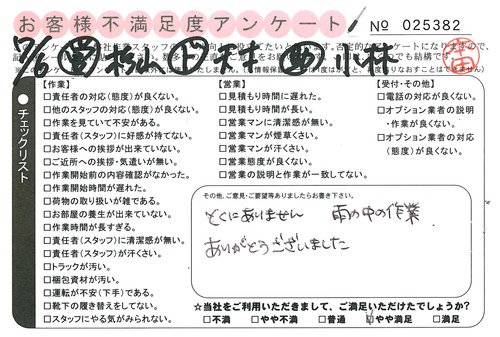 お客様不満足度アンケート
No 025382
チェックリスト
【作業】
□責任者の対応(態度)が良くない。
□他のスタッフの対応(態度)が良くない。
□作業を見ていて不安がある。
□責任者(スタッフ)に好感が持てない。
□お客様への挨拶が出来ていない。
□ご近所への挨拶・気遣いが無い。
□作業開始前の内容確認がなかった。
□作業開始時間が遅れた。
□荷物の取り扱いが雑である。
□お部屋の養生が出来ていない。
□作業時間が長すぎる。
□責任者(スタッフ)に清潔感が無い。
□責任者(スタッフ)が汗くさい。
□トラックが汚い。
□梱包資材が汚い。
□運転が不安(下手)である。
□靴下の履き替えをしてない。
□スタッフにやる気がみられない。
【営業】
□見積もり時間に遅れた。
□見積もり時間が長い。
□営業マンに清潔感が無い。
□営業マンが煙草くさい。
□営業マンが汗くさい。
□営業態度が良くない。
□営業の説明と作業が一致してない。
【受付・その他】
□電話の対応が良くない。
□オプション業者の説明
・作業が良くない。
□オプション業者の対応
(態度)が良くない。
その他、ご意見・ご要望等ありましたらお書き下さい。
とくにありません 雨の中の作業
ありがとうございました
☆当社をご利用いただきまして、ご満足いただけたでしょうか?
□不満 □やや不満 □普通 □やや満足 □満足